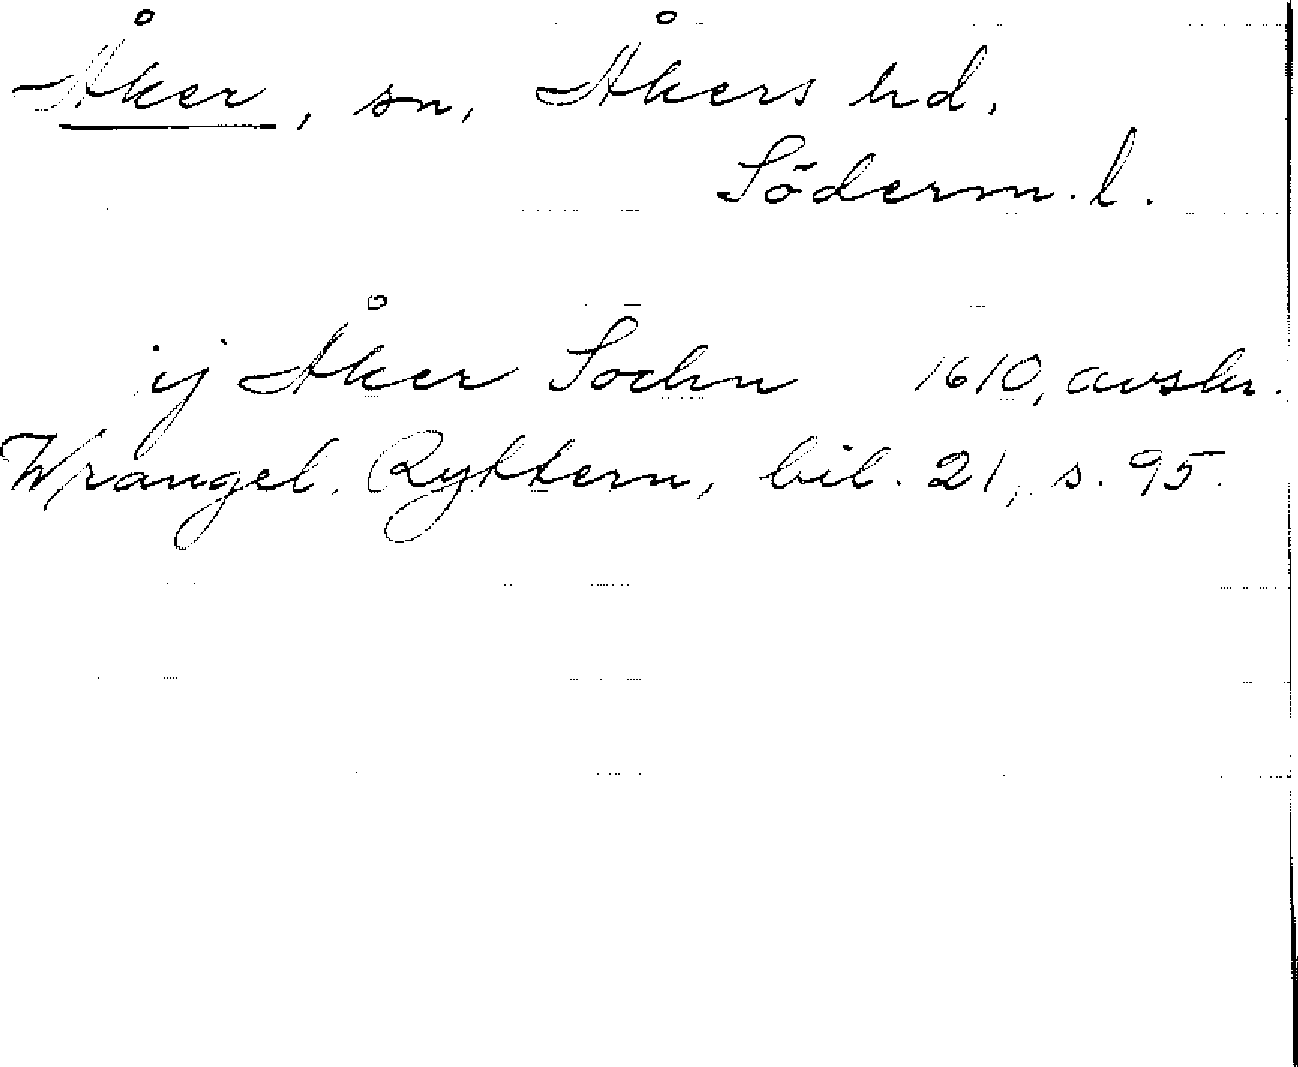 Åker, sn, Åkers hd.
Söderm. l.
ij Åker Sochn 1610, avskr.
Wrangel. Ryttern, bil. 21, s. 95.